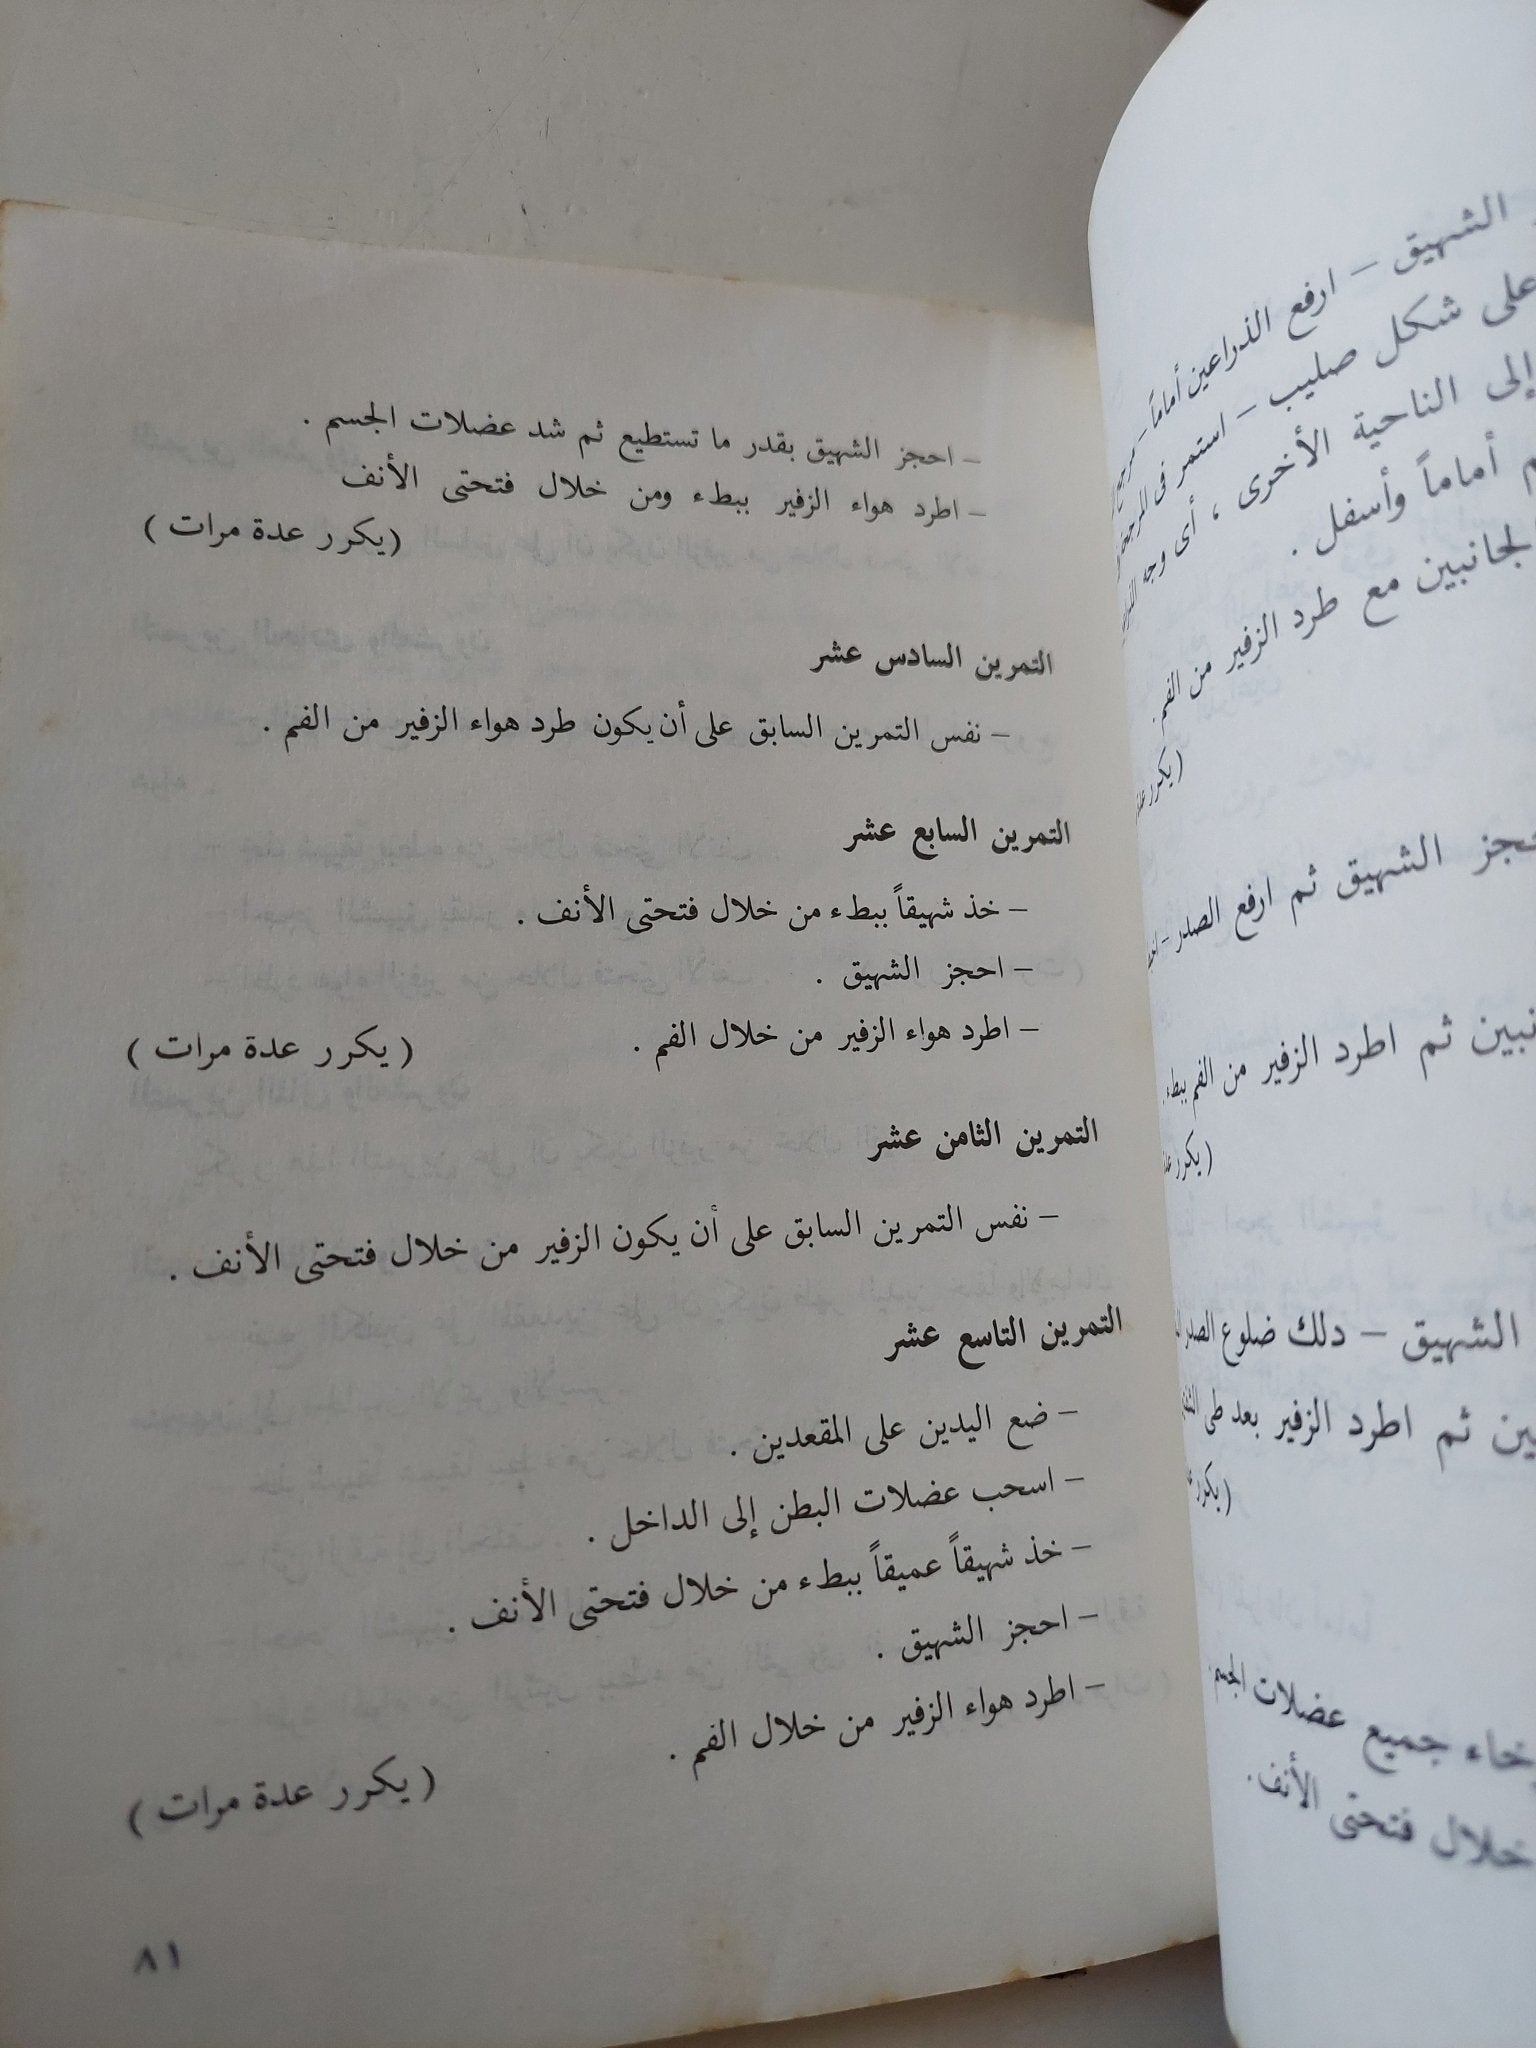 الشهيق – ارفع الذراعين أماماً –
على شكل صليب – استمر فى
إلى الناحية الأخرى ، أى وجه
أماماً وأسفل .
لجانبين مع طرد الزفير من الفم .
(يكرر
الشهيق ثم ارفع الصدر –
ثم اطرد الزفير من الفم ببطء .
(يكرر
الشهيق – دلك ضلوع الصدر
ثم اطرد الزفير بعد طى
(يكرر
جميع عضلات الجسم
خلال فتحتى الأنف .
– احجز الشهيق بقدر ما تستطيع ثم شد عضلات الجسم .
– اطرد هواء الزفير ببطء ومن خلال فتحتى الأنف
(يكرر عدة مرات )
التمرين السادس عشر
– نفس التمرين السابق على أن يكون طرد هواء الزفير من الفم .
التمرين السابع عشر
– خذ شهيقاً ببطء من خلال فتحتى الأنف .
– احجز الشهيق .
– اطرد هواء الزفير من خلال الفم . ( يكرر عدة مرات )
التمرين الثامن عشر
– نفس التمرين السابق على أن يكون الزفير من خلال فتحتى الأنف .
التمرين التاسع عشر
– ضع اليدين على المقعدين .
– اسحب عضلات البطن إلى الداخل .
– خذ شهيقاً عميقاً ببطء من خلال فتحتى الأنف .
– احجز الشهيق .
– اطرد هواء الزفير من خلال الفم .
( يكرر عدة مرات )
٨١